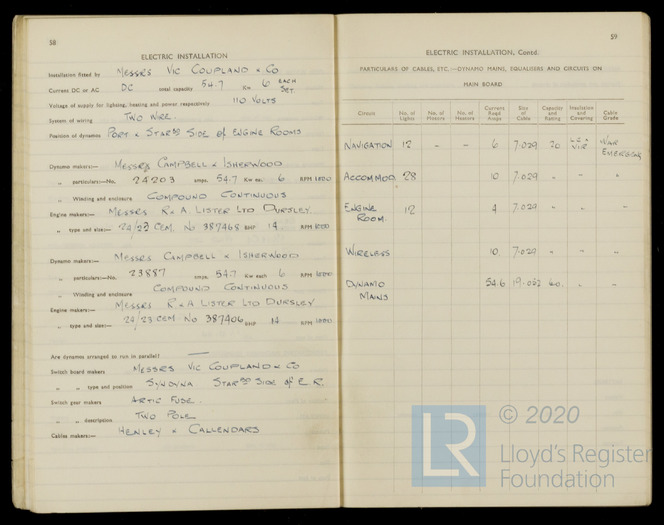 58
ELECTRIC INSTALLATION
Installation fitted by MESSRS VIC COUPLAND & CO
Current DC or AC DC total capacity 54.7 Kw 6 EACH SET.
Voltage of supply for lighting, heating and power respectively 110 VOLTS
System of wiring TWO WIRE.
Position of dynamos PORT & STARBD SIDE OF ENGINE ROOMS
Dynamo makers:— MESSRS CAMPBELL & ISHERWOOD
„ particulars:—No. 24203 amps. 54.7 Kw ea. 6 RPM 1200
„ Winding and enclosure COMPOUND CONTINUOUS
Engine makers:— MESSRS R & A LISTER LTD DURSLEY
„ type and size:— 24/23 CEM. No 387468 BHP 14. RPM 1200
Dynamo makers:— MESSRS CAMPBELL & ISHERWOOD
„ particulars:—No. 23887 amps. 54.7 Kw each 6 RPM 1200
„ Winding and enclosure COMPOUND CONTINUOUS
Engine makers:— MESSRS R & A LISTER LTD DURSLEY
„ type and size:— 24/23 CEM No 387406 BHP 14 RPM 1200
Are dynamos arranged to run in parallel? —
Switch board makers MESSRS VIC COUPLAND & CO
„ „ type and position STARBD SIDE OF E.R.
Switch gear makers ARTIC FUSE.
„ „ description TWO POLE
Cables makers:— HENLEY & CALLENDARS
59
ELECTRIC INSTALLATION, Contd.
PARTICULARS OF CABLES, ETC.—DYNAMO MAINS, EQUALISERS AND CIRCUITS ON
MAIN BOARD
Circuit No. of Lights No. of Motors No. of Heaters Current Reqd Amps Size of Cable Capacity and Rating Insulation and Covering Cable Grade
NAVIGATION 12 - - 6 7.029 20 LC & VIR WAR EMERGENCY
ACCOMMOD. 28 10 7.029 " - "
ENGINE ROOM. 12 4 7.029 " - "
WIRELESS 10 7.029 " - "
DYNAMO MAINS 54.6 19.052 60. " "
LR
© 2020
Lloyd's Register
Foundation